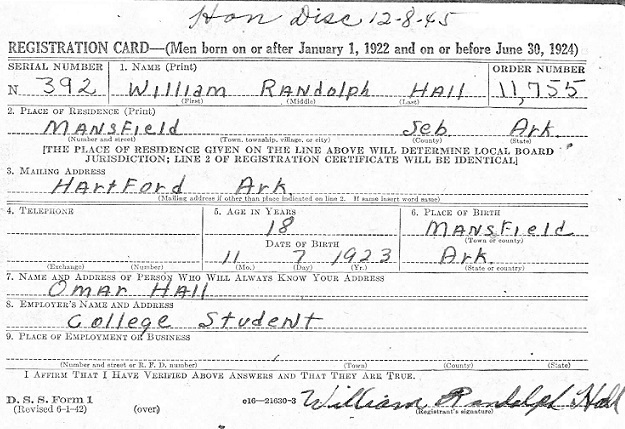 Hon Disc 12-8-45
REGISTRATION CARD—(Men born on or after January 1, 1922 and on or before June 30, 1924)
SERIAL NUMBER 1. NAME (Print) ORDER NUMBER
N 392 William Randolph Hall 11,755
(First) (Middle) (Last)
2. PLACE OF RESIDENCE (Print)
Mansfield Seb. Ark
(Number and street) (Town, township, village, or city) (County) (State)
[THE PLACE OF RESIDENCE GIVEN ON THE LINE ABOVE WILL DETERMINE LOCAL BOARD
JURISDICTION; LINE 2 OF REGISTRATION CERTIFICATE WILL BE IDENTICAL]
3. MAILING ADDRESS
Hartford Ark
(Mailing address if other than place indicated on line 2. If same insert word same)
4. TELEPHONE 5. AGE IN YEARS 6. PLACE OF BIRTH
18 Mansfield
DATE OF BIRTH (Town or county)
11 7 1923 Ark.
(Exchange) (Number) (Mo.) (Day) (Yr.) (State or country)
7. NAME AND ADDRESS OF PERSON WHO WILL ALWAYS KNOW YOUR ADDRESS
Omar Hall
8. EMPLOYER'S NAME AND ADDRESS
College Student
9. PLACE OF EMPLOYMENT OR BUSINESS
(Number and street or R. F. D. number) (Town) (County) (State)
I AFFIRM THAT I HAVE VERIFIED ABOVE ANSWERS AND THAT THEY ARE TRUE.
D. S. S. Form 1
(Revised 6-1-42) (over) c16—21630-3 William Randolph Hall
(Registrant's signature)